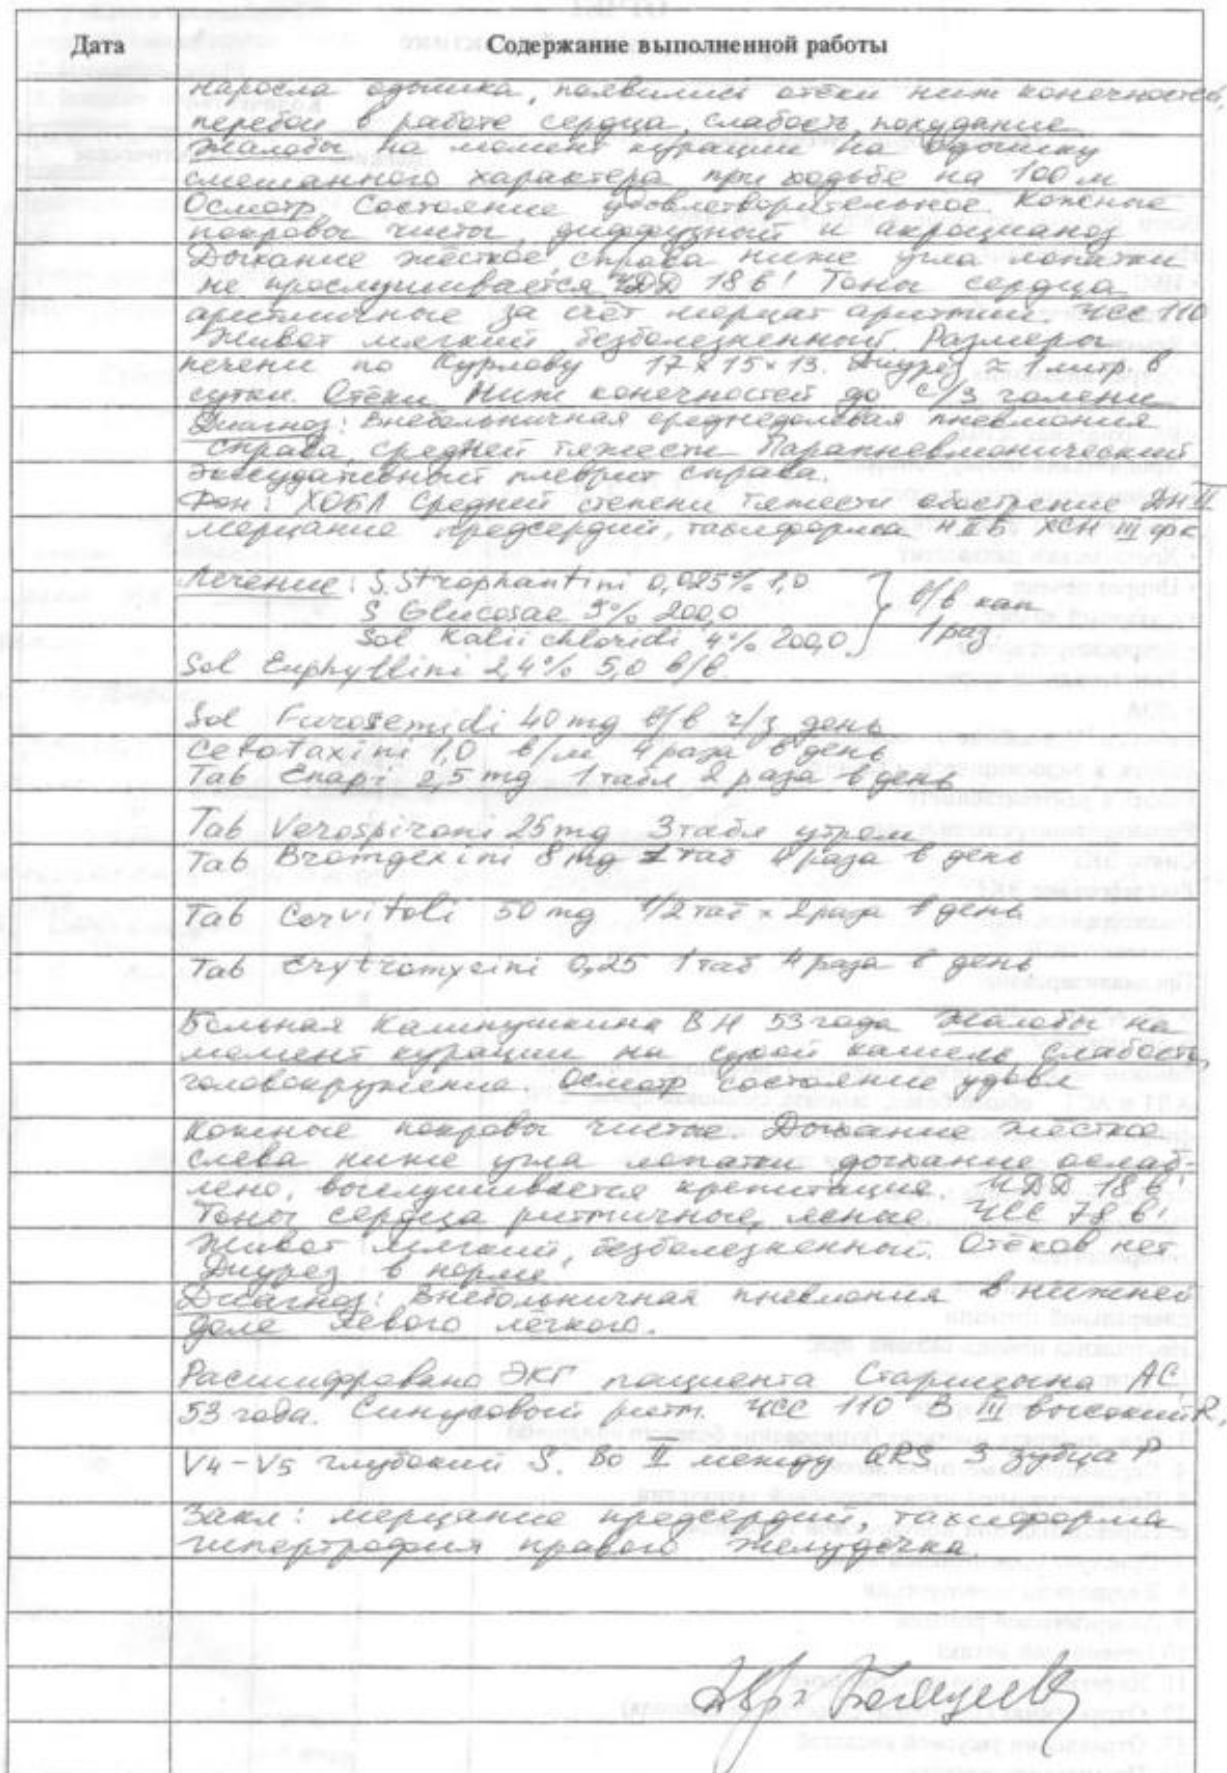 Дата Содержание выполненной работы
наросла одышка, появились отёки ниж конечностей,
перебои в работе сердца, слабость, похудание
Жалобы на момент курации на одышку
смешанного характера при ходьбе на 100 м
Осмотр Состояние удовлетворительное. Кожные
покровы чисты, диффузный и акроцианоз
Дыхание жёсткое, справа ниже угла лопатки
не прослушивается, ЧДД 18 в ! Тоны сердца
аритмичные за счёт мерцат аритмии. ЧСС 110
Живот мягкий безболезненный. Размеры
печени по Курлову 17×15×13. Диурез ≈ 1 литр в
сутки. Отёки ниж конечностей до с/3 голени
Диагноз: Внебольничная среднедолевая пневмония
справа, средней тяжести Парапневмонический
экссудативный плеврит справа.
Фон: ХОБЛ средней степени тяжести обострение ДН II
мерцание предсердий, тахиформа Н IIБ ХСН III фк
Лечение: S. Strophantini 0,025% 1,0
S Glucosae 5% 200,0 в/в кап
Sol Kalii chloridi 4% 200,0 1 раз
Sol Euphyllini 2,4% 5,0 в/в.
Sol Furosemidi 40 mg в/в ч/з день
Cefotaxini 1,0 в/м 4 раза в день
Tab Enapi 2,5 mg 1 табл 2 раза в день
Tab Verospironi 25 mg 3 табл утром
Tab Bromgexini 8 mg 2 таб 4 раза в день
Tab Corvitoli 50 mg 1/2 таб × 2 раза в день
Tab Erytromycini 0,25 1 таб 4 раза в день
Больная Калинушкина В Н 53 года Жалобы на
момент курации на сухой кашель слабость,
головокружение. Осмотр состояние удовл
Кожные покровы чистые. Дыхание жёсткое
слева ниже угла лопатки дыхание ослаб-
лено, выслушивается крепитация. ЧДД 18 в !
Тоны сердца ритмичные, ясные. ЧСС 78 в !
Живот мягкий, безболезненный. Отёков нет.
Диурез в норме.
Диагноз: Внебольничная пневмония в нижней
доле левого лёгкого.
Расшифровано ЭКГ пациента АС,
53 года. Синусовый ритм. ЧСС 110 В III высокий R,
V4-V5 глубокий S. Во II между QRS 3 зубца P
Закл: мерцание предсердий, тахиформа
гипертрофия правого желудочка